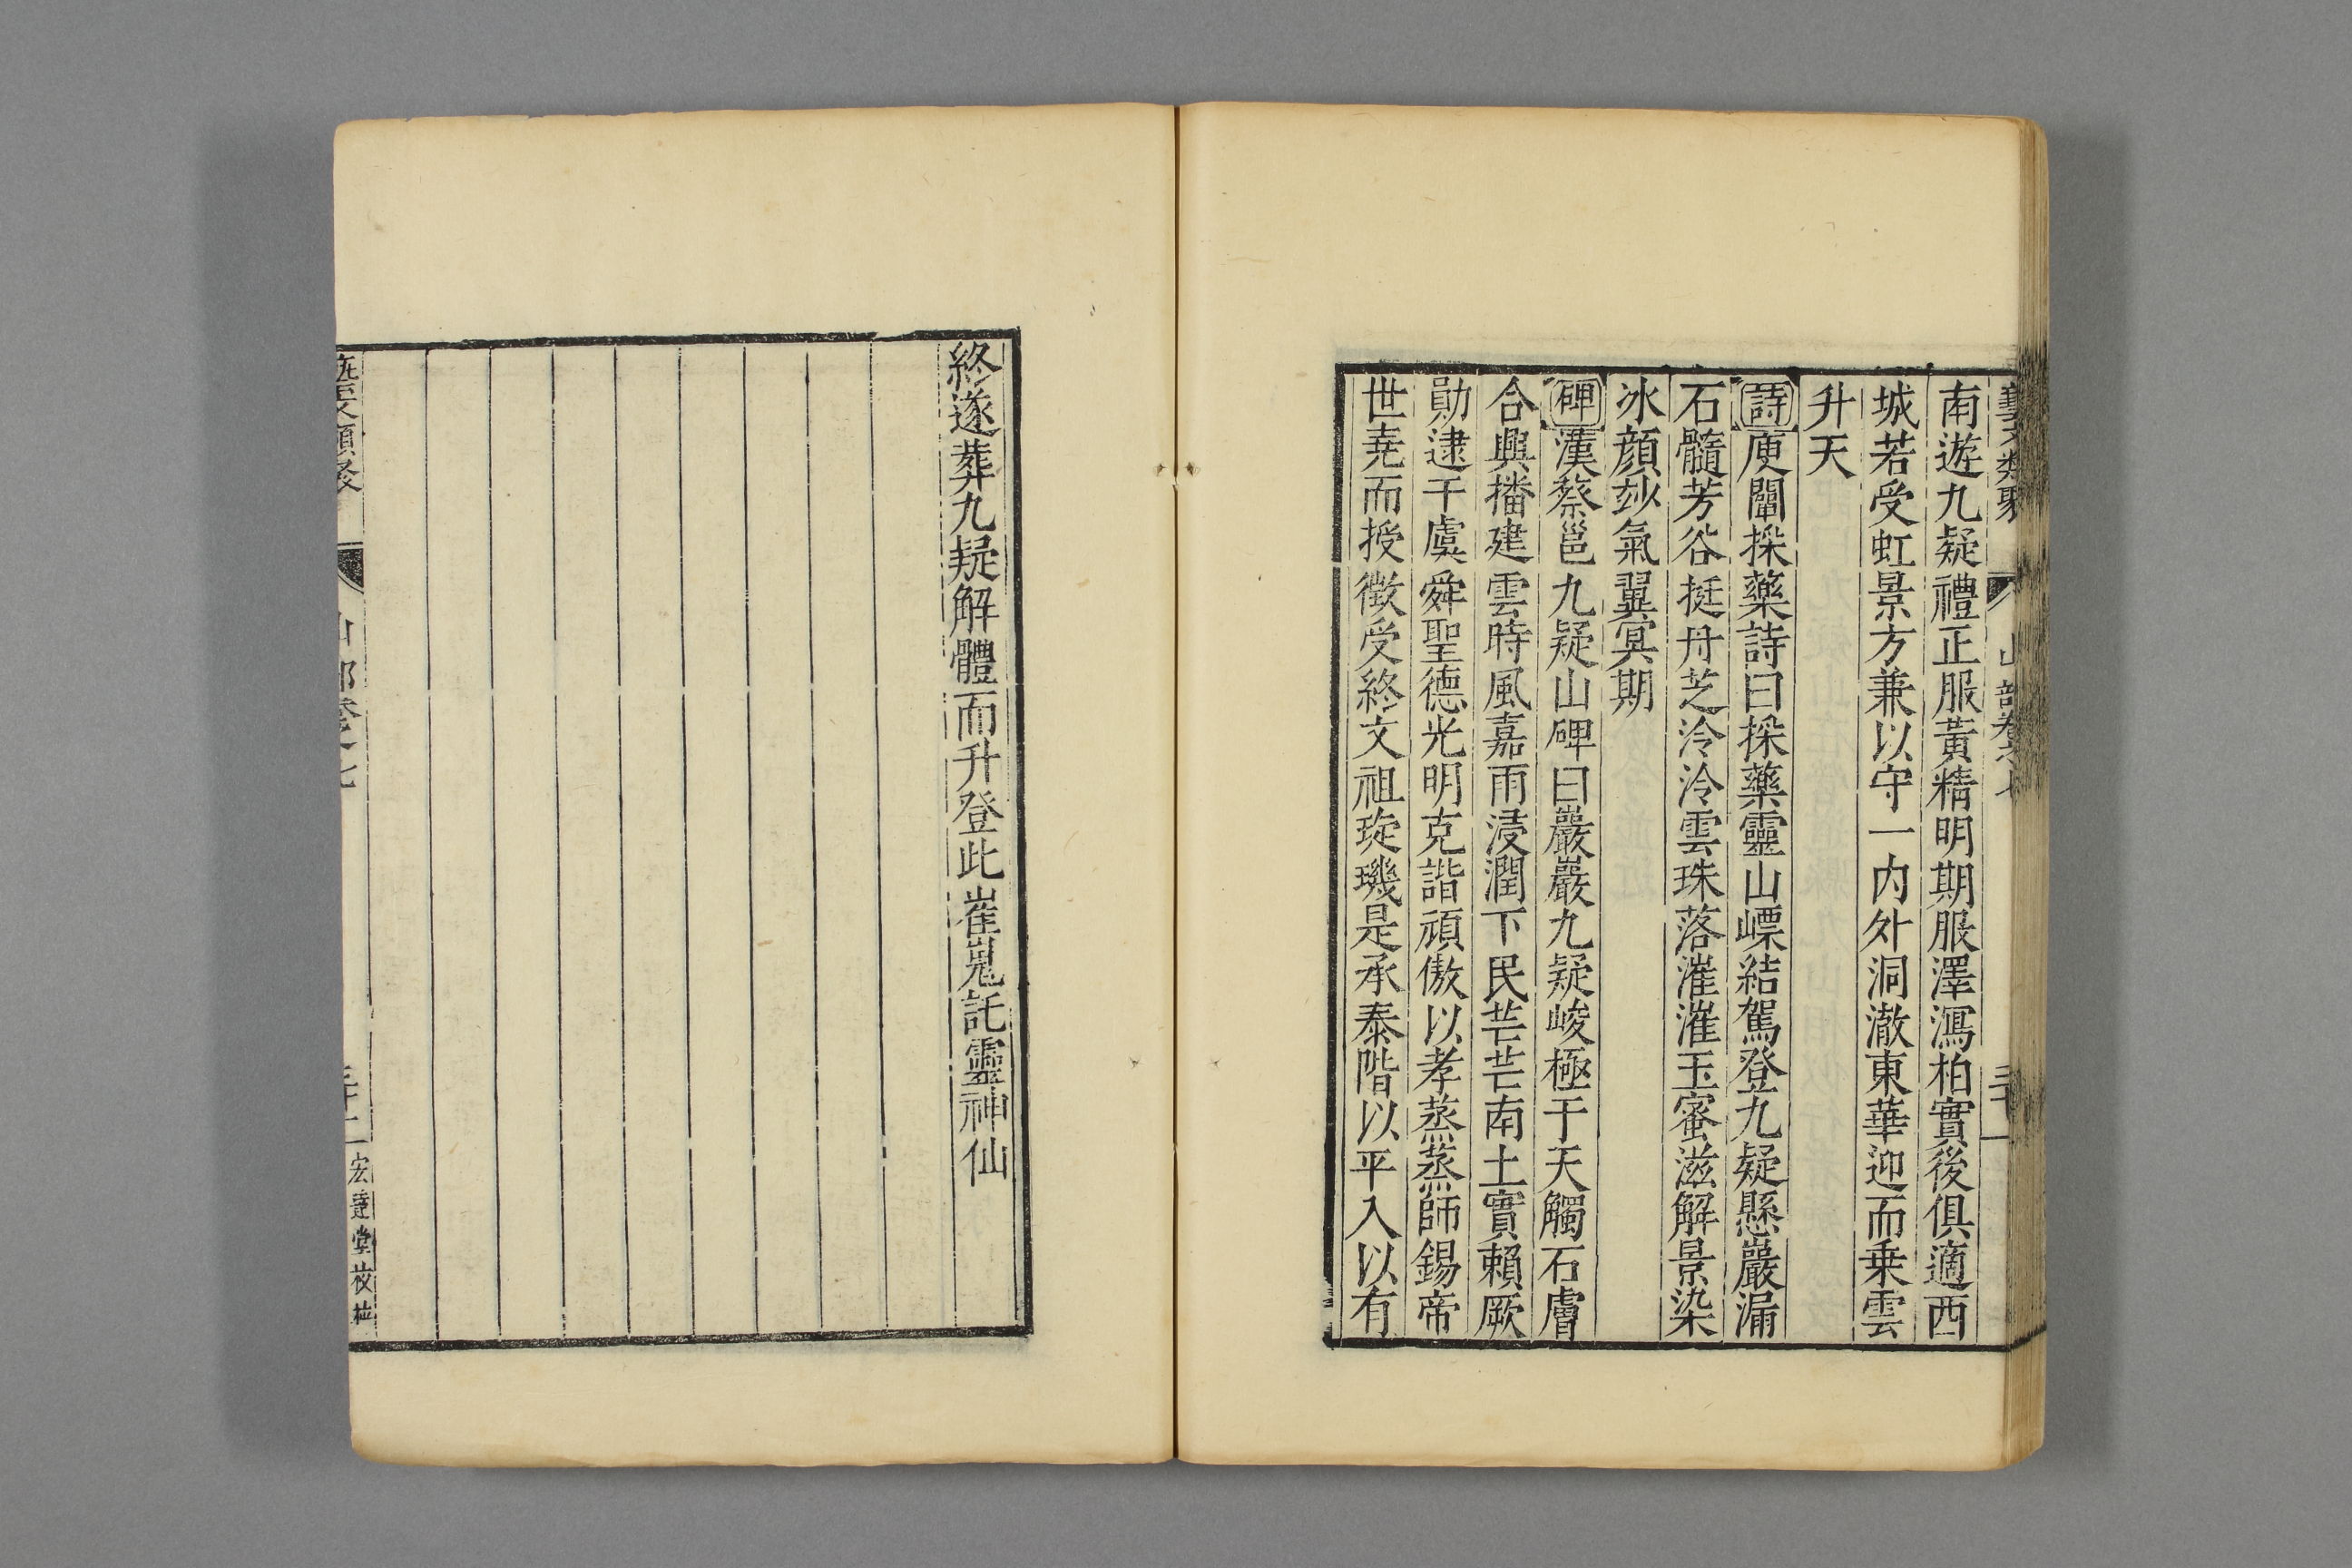 南遊九疑禮正服黃精明期服澤瀉柏實後俱適西
城若受虹景方兼以守一内外洞澈東華迎而乗雲
升天
詩庾闡採藥詩曰採藥靈山㟽結駕登九疑懸巖漏
石髓芳谷挺丹芝泠泠雲珠落漼漼玉蜜滋解景染
冰顔玅氣翼冥期
碑漢蔡邕九疑山碑曰巖巖九疑峻極于天觸石膚
合興播建雲時風嘉雨浸潤下民芒芒南土實賴厥
勛逮于虞舜聖德光明克諧頑傲以孝蒸蒸師錫帝
世堯而授徵受終文祖琁璣是承泰階以平入以有
終遂葬九疑解體而升登此崔嵬託靈神仙
山部卷之七
三十二
宏達堂校栞